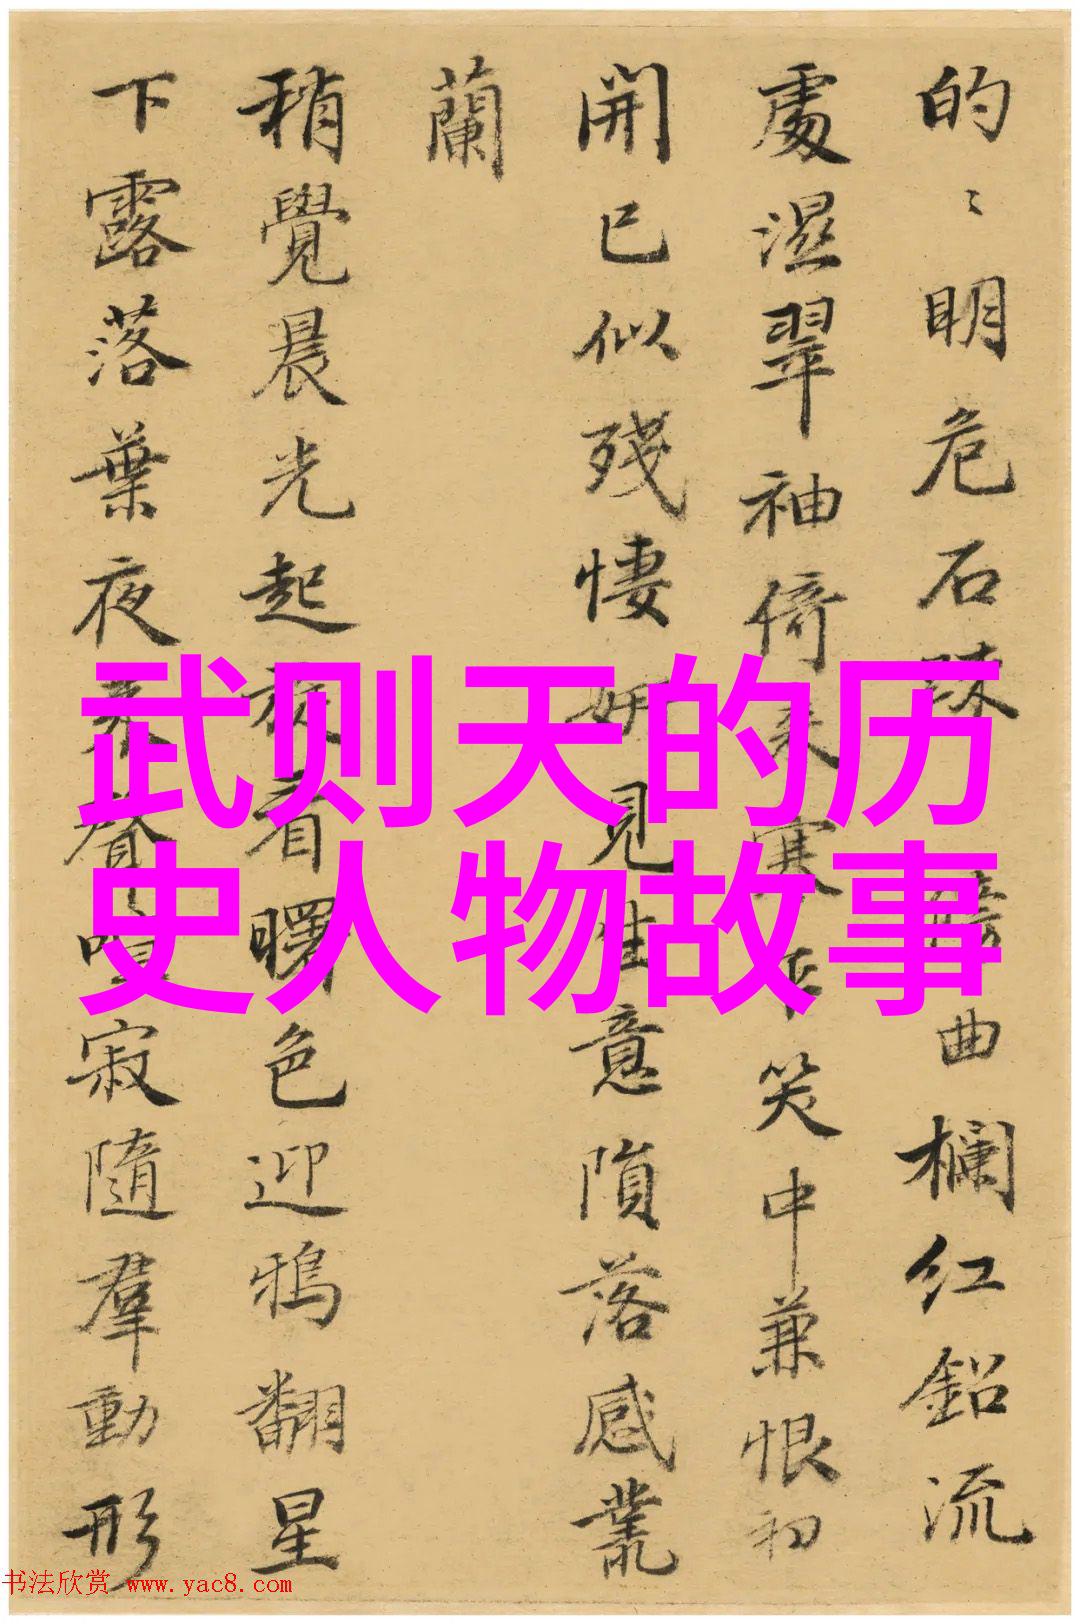 的〻明危石疎 篱曲欄红鉛流
處濕翠袖倚来寒乍笑中兼恨初
開已似残悽妍見生意隕落感叢
蘭
稍覺晨光起旋看曙色迎鴉翻星
下露落葉夜系聲嗅寂隨羣動形
武则天的历
史人物故事
书法欣赏 www.yac8.com